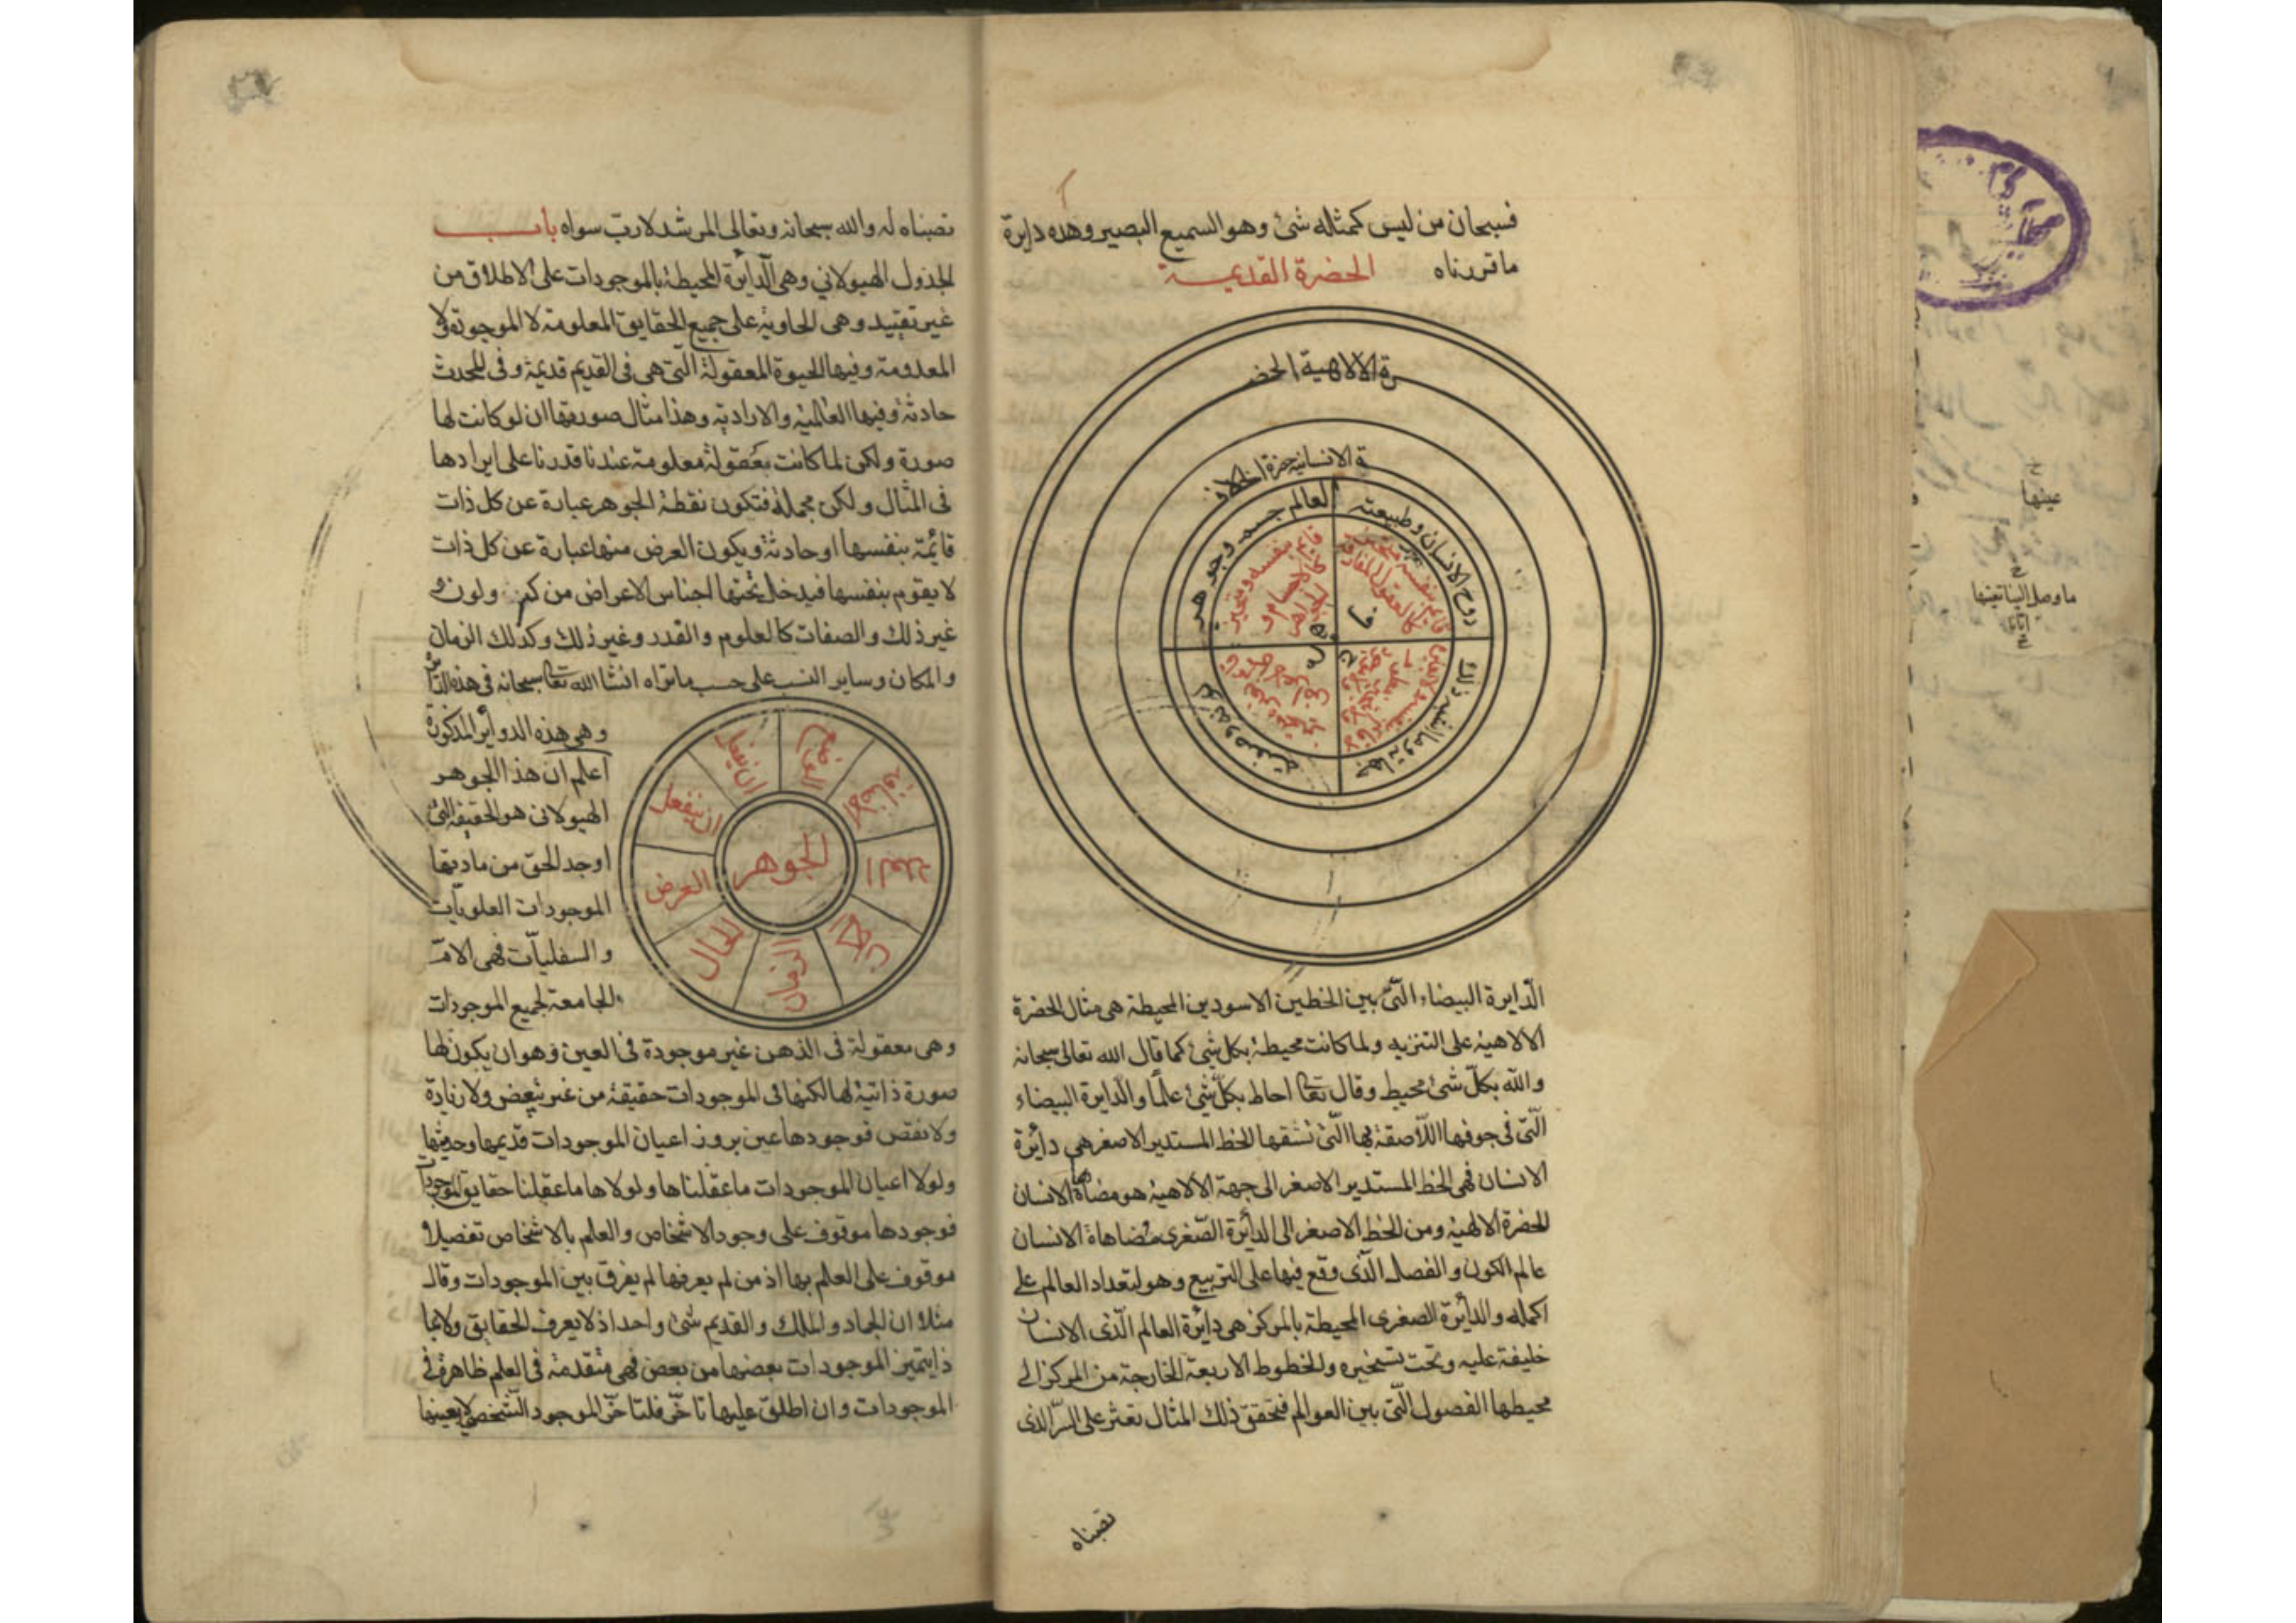 فسبحان من ليس كمثله شئ وهو السميع البصير وهذه دايرة
ما قررناه الحضرة القديمـة
الحضرة الالاهية
العالم جسمه وجوهره
روح الانسان وطبيعته
الدايرة البيضاء الّتى بين الخطين الاسودين المحيطة هى مثال الحضرة
الالاهية على التنزيه ولما كانت محيطة بكل شئ كما قال الله تعالى سبحانه
والله بكلّ شئ محيط وقال تعا احاط بكلّ شئ علمًا والدايرة البيضاء
الّتى فى جوفها اللّاصقة بها الّتى تشقها الخط المستدير الاصغر هى دائرة
الانسان فهى الخط المستدير الاصغر الى جهة الالاهية هو مضاهاة الانسان
للحضرة الالهية ومن الخط الاصغر الى الدائرة الصّغرى مضاهاة الانسان
عالم الكون والفصل الّذى وقع فيها على التربيع وهو لتعداد العالم على
اكمله والدائرة الصغرى المحيطة بالمركز هى دايرة العالم الّذى الانسان
خليفة عليه وتحت تسخيره والخطوط الاربعة الخارجة من المركز الى
محيطها الفصول الّتى بين العوالم فتحقق ذلك المثال تعثر على السرّ الذى
نصبناه
نصبناه له والله سبحانه وتعالى المرشد لا رب سواه بابـــ
الجدول الهيولانى وهى الدائرة المحيطة بالموجودات على الاطلاق من
غير تقييد وهى الحاوية على جميع الحقايق المعلومة لا الموجودة ولا
المعدومة وفيها الحيوة المعقولة الّتى هى فى القديم قديمة وفى المحدث
حادثة وفيها العالمية والارادية وهذا مثال صورتها ان لو كانت لها
صورة ولكن لما كانت معقولة معلومة عندنا قدرنا على ايرادها
فى المثال ولكن مجملة فتكون نقطة الجوهر عبارة عن كل ذات
قائمة بنفسها او حادثة ويكون العرض منها عبارة عن كل ذات
لا يقوم بنفسها فيدخل تحتها اجناس الاعراض من كم ولون و
غير ذلك والصفات كالعلوم والقدر وغير ذلك وكذلك الزمان
والمكان وساير النسب على حسب ما تراه انشا الله تعا سبحانه فى هذه
وهى هذه الدوائر المذكورة
اعلم ان هذا الجوهر
الهيولانى هو الحقيقة الّتى
اوجد الحق من مادتها
الموجودات العلويات
والسفليّات فهى الامّ
الجامعة لجميع الموجودات
الوضع
الاضافة
العدد
المكان
الزمان
الحال
العرض
ان ينفعل
ان يفعل
الجوهر
وهى معقولة فى الذهن غير موجودة فى العين وهو ان يكون لها
صورة ذاتية لها لكنها فى الموجودات حقيقة من غير تبعض ولا زيادة
ولا نقص فوجودها عين بروز اعيان الموجودات قديمها وحديثها
ولولا اعيان الموجودات ما عقلناها ولولاها ما عقلنا حقايق الموجودات
فوجودها موقوف على وجود الاشخاص والعلم بالاشخاص تفصيلا
موقوف على العلم بها اذ من لم يعرفها لم يفرق بين الموجودات وقال
مثلا ان الجماد والملك والقديم شئ واحد اذ لا يعرف الحقايق ولا بما
ذا يتميز الموجودات بعضها من بعض فهى متقدمة فى العلم ظاهرة فى
الموجودات وان اطلق عليها تاخّر فلتاخّر الموجود الشخصى لا بعينها
عينها
ما وصل الينا تعينها